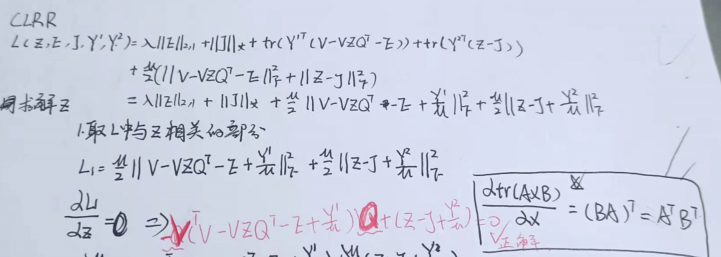 CLRR
L(Z,E,J,Y¹,Y²)=λ||E||₂,₁+||J||*+tr(Y¹ᵀ(V-VZQᵀ-E))+tr(Y²ᵀ(Z-J))
+μ/2(||V-VZQᵀ-E||²_F+||Z-J||²_F)
求解Z =λ||E||₂,₁+||J||*+μ/2||V-VZQᵀ-E+Y¹/μ||²_F+μ/2||Z-J+Y²/μ||²_F
1.取L中与Z相关的部分
L₁=μ/2||V-VZQᵀ-E+Y¹/μ||²_F+μ/2||Z-J+Y²/μ||²_F
∂L₁/∂Z=0 ⇒ -Vᵀ(V-VZQᵀ-E+Y¹/μ)Q+(Z-J+Y²/μ)=0
∂tr(AXB)/∂X=(BA)ᵀ=AᵀBᵀ
√正解